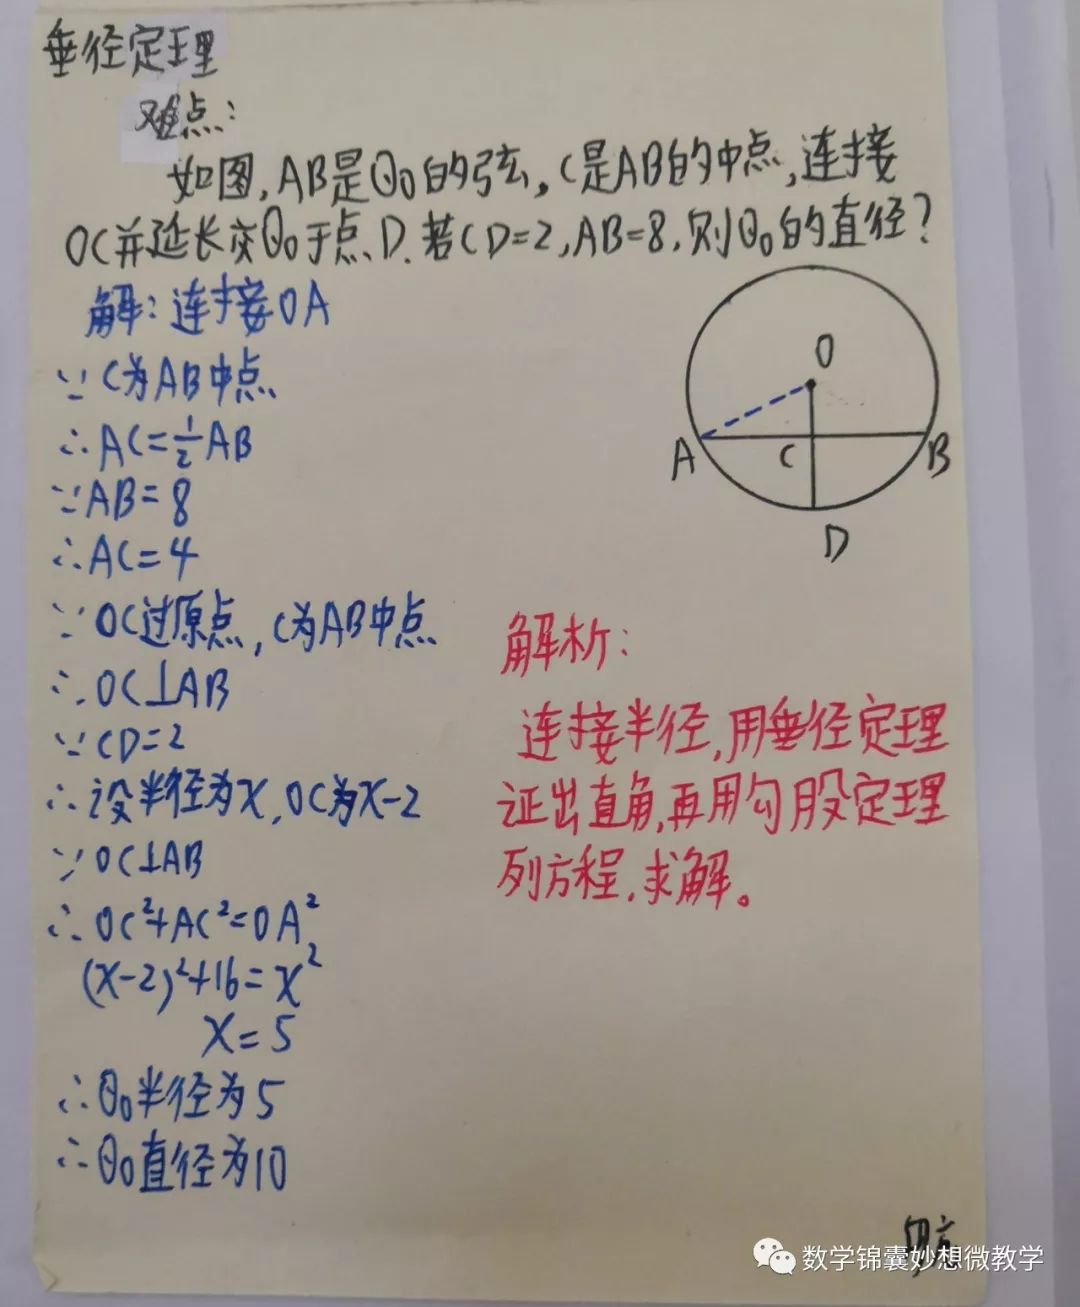 垂径定理
难点:
如图,AB是⊙O的弦,C是AB的中点,连接
OC并延长交⊙O于点D.若CD=2,AB=8,则⊙O的直径?
解:连接OA
∵C为AB中点
∴AC=½AB
∵AB=8
∴AC=4
∵OC过原点,C为AB中点
∴OC⊥AB
∵CD=2
∴设半径为x,OC为x-2
∵OC⊥AB
∴OC²+AC²=OA²
(x-2)²+16=x²
x=5
∴⊙O半径为5
∴⊙O直径为10
O
A
C
B
D
解析:
连接半径,用垂径定理
证出直角,再用勾股定理
列方程,求解。
数学锦囊妙想微教学